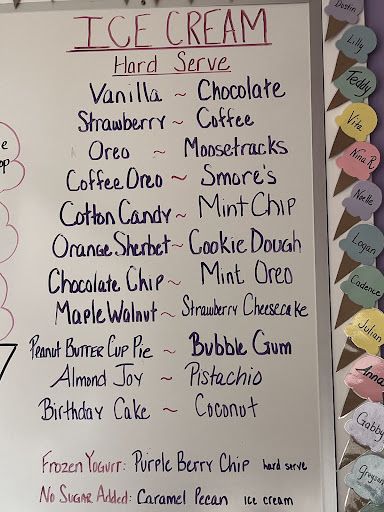 ICE CREAM
Hard Serve
Vanilla ~ Chocolate
Strawberry ~ Coffee
Oreo ~ Moosetracks
Coffee Oreo ~ Smore's
Cotton Candy ~ Mint Chip
Orange Sherbet ~ Cookie Dough
Chocolate Chip ~ Mint Oreo
Maple Walnut ~ Strawberry Cheesecake
Peanut Butter Cup Pie ~ Bubble Gum
Almond Joy ~ Pistachio
Birthday Cake ~ Coconut
Frozen Yogurt: Purple Berry Chip hard serve
No Sugar Added: Caramel Pecan Ice cream
Dustin
Lilly
Teddy
Vita
Nina R
Noelle
Logan
Cadence
Julian
Anna
Gabby
Greyson